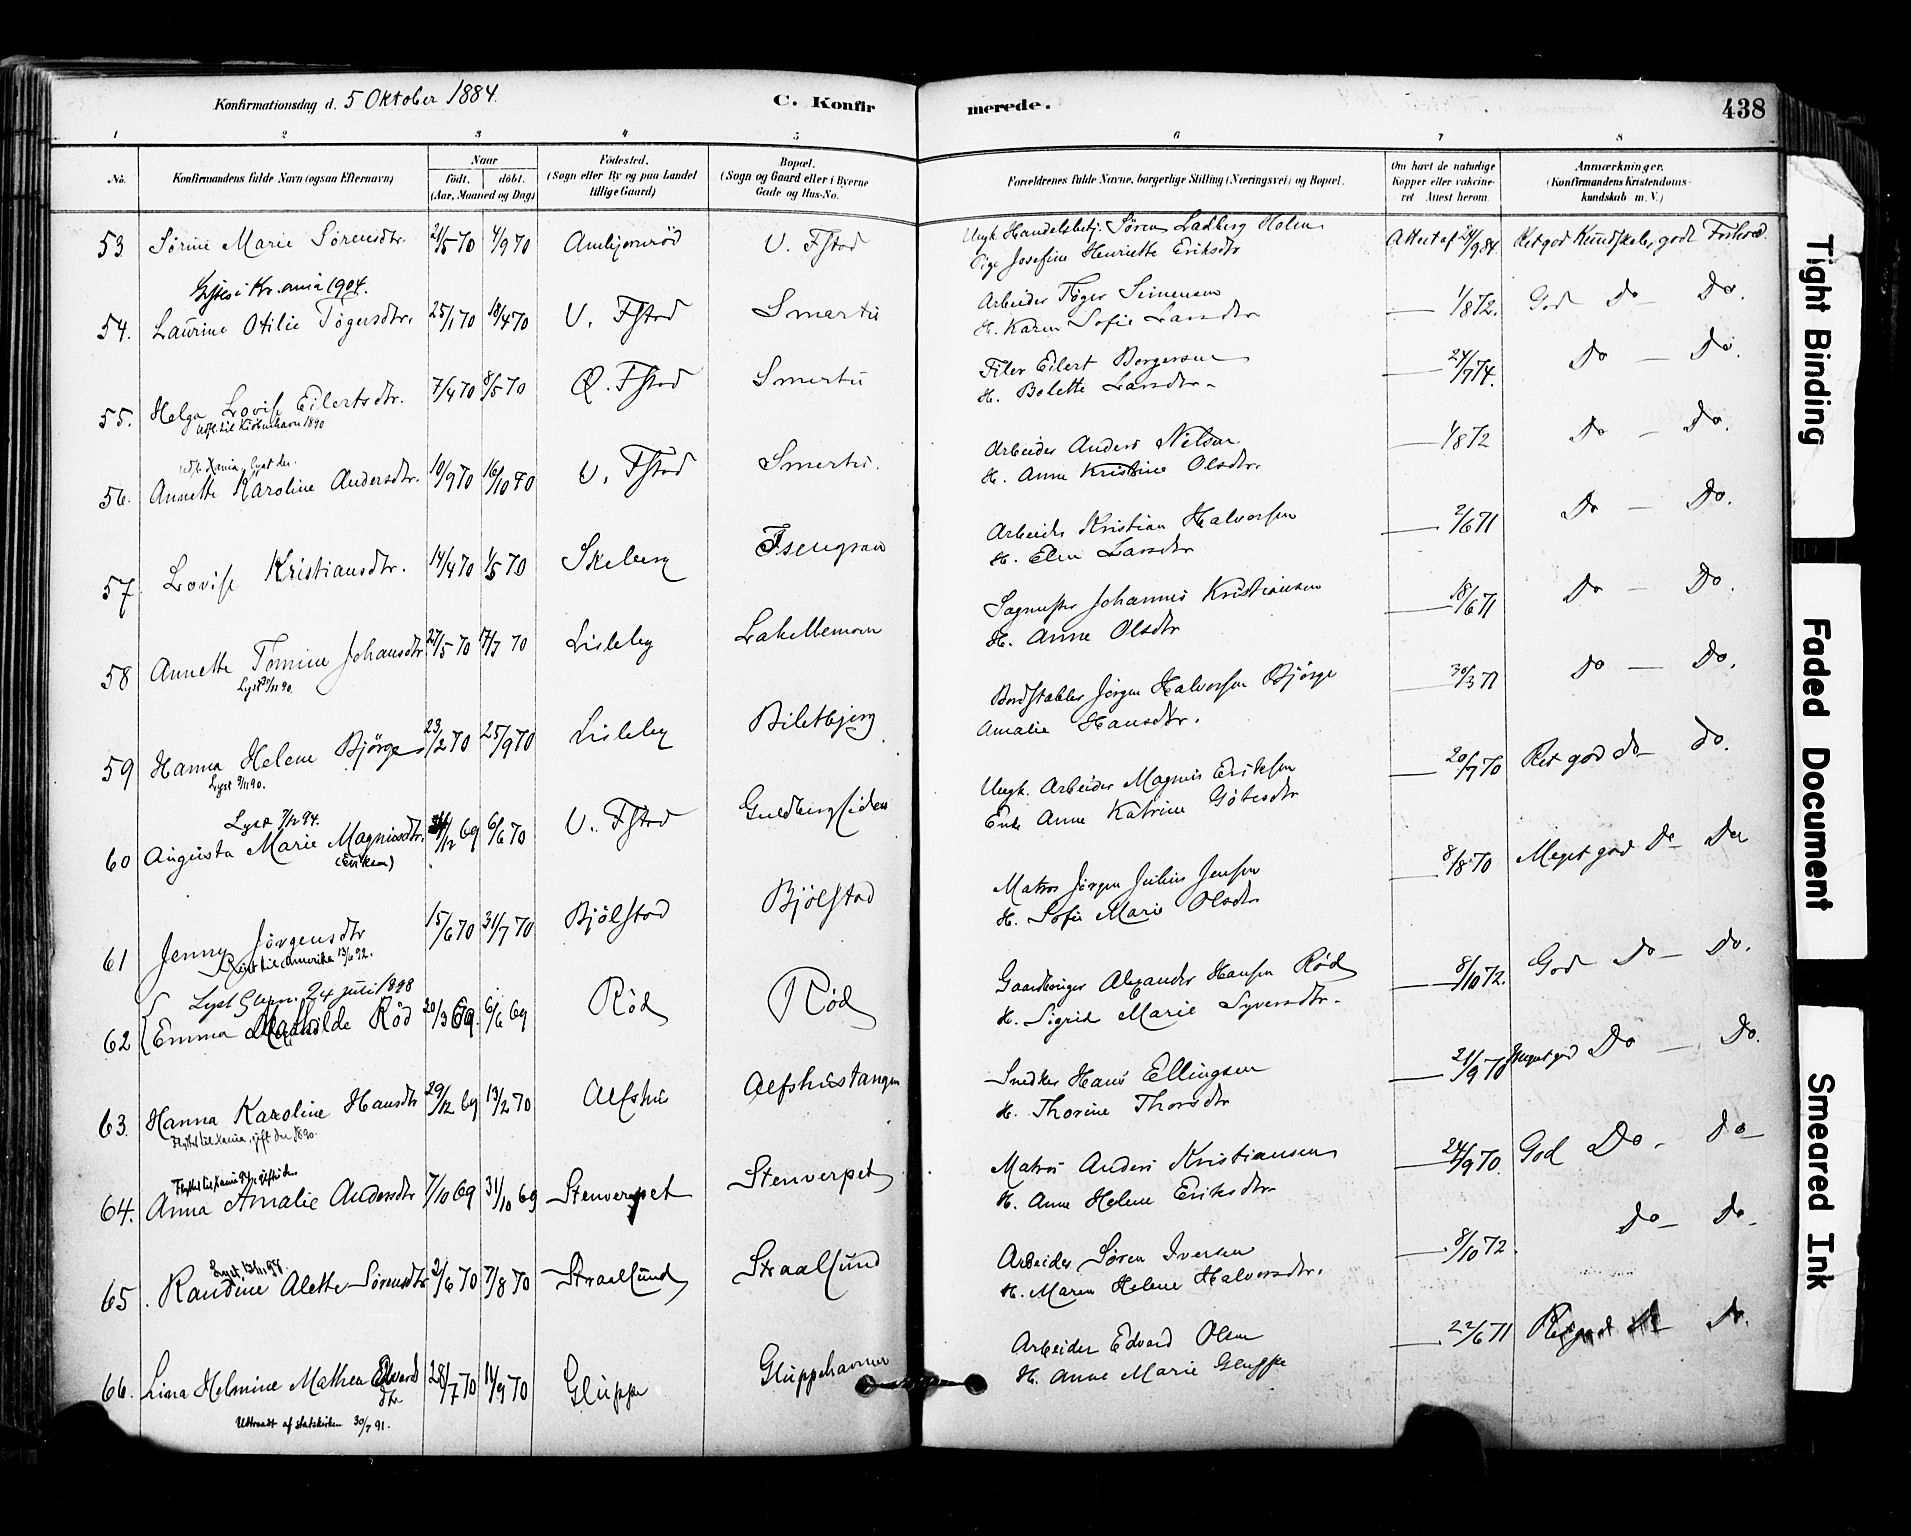 Konfirmationsdag d. 5 Oktober 1884.
C. Konfir
merede.
438
1 2 3 4 5 6 7 8
No.
Konfirmandens fulde Navn (ogsaa Efternavn)
Naar
født. døbt.
(Aar, Maaned og Dag)
Fødested.
(Sogn eller By og paa Landet
tillige Gaard)
Bopæl.
(Sogn og Gaard eller i Byerne
Gade og Hus-No.
Forældrenes fulde Navne, borgerlige Stilling (Næringsvei) og Bopæl.
Om havt de naturlige
Kopper eller vakcine-
ret Attest herom.
Anmærkninger.
(Konfirmandens Kristendoms-
kundskab m. V.)
53. Sørine Marie Sørensdtr. 21/5 70 4/9 70 Ambjørnrød V. FStad
Ungk. Handelsbetj. Søren Ladberg Holm
Pige Josefine Henriette Eriksdtr
Attest af 24/9 84. Ret god Kundskab, godt Forhold.
Lystes i Kr.ania 1904.
54. Laurine Otilie Tøgersdtr. 25/1 70 18/4 70 V. FStad Smertu
Arbeider Tøger Simensen
H. Karen Sofie Larsdtr
1/8 72. God Do Do.
55. Helga Lovise Eilertsdtr. 7/4 70 8/5 70 Ø. FStad Smertu
Udfl. til Kiøbenhavn 1890
Filer Eilert Borgersen
H. Bolette Larsdtr
24/7 74. Do Do.
56. Annette Karoline Andersdtr. 10/9 70 16/10 70 V. FStad Smertu.
Arbeider Anders Nilsen.
H. Anne Kristine Olsdtr.
1/8 72 Do Do.
57 Lovise Kristiansdtr. 14/4 70 1/5 70 Skeberg
Arbeider Kristian Halvorsen
H. Elen Larsdtr
2/6 71 Do Do.
58 Annette Tomine Johansdtr 27/5 70 17/7 70 Lisleby Lahellemoen
Sagmester Johannes Kristiansen
H. Anne Olsdtr
18/6 71 Do Do.
59 Hanna Helene Bjørge 23/2 70 25/9 70 Lisleby Biletbjerg
Lyst 9/11 90.
Bordstabler Jørgen Halvorsen Bjørge
Amalie Hansdtr.
30/3 71 Do Do.
Lyst 7/12 94.
60 Augusta Marie Magnusdtr. /12 69 6/6 70 V. FStad Guldbergsiden
(Eriksen)
Ungk. Arbeider Magnus Eriksen
Enke Anne Katrine Gøbesdtr
20/7 70 Ret god do do.
61 Jenny Jørgensdtr 15/6 70 31/7 70 Bjølstad Bjølstad
Reist til Amerika 13/6 92.
Matros Jørgen Julius Jensen
H. Sofie Marie Olsdtr
8/8 70 Meget god Do Do
Lyst Glem. 24 juli 1898
62 Emma Mathilde Rød 20/3 69. 6/6 69 Rød Rød
Gaardbruger Alexander Hansen Rød
H. Sigrid Marie Syversdtr.
8/10 72. God Do Do.
63. Hanna Karoline Hansdtr 29/12 69 13/2 70 Alfshus Alfshustangen
Flyttet til Kania, gift der 1890.
Snedker Hans Ellingsen
H. Thorine Thorsdtr
21/9 70 Meget god Do Do.
64. Anna Amalie Andersdtr 7/10 69 31/10 69 Stenverpet Stenverpet
Matros Anders Kristiansen
H. Anne Helene Eriksdtr
24/9 70. God Do Do
Lyst 13/11 97.
65. Randine Alette Sørensdtr 2/6 70 7/8 70 Straalsund Straalsund
Arbeider Søren Iversen
H. Maren Helene Halvorsdtr.
8/10 72. Do Do
66. Lina Helmine Mathea Edvards
dtr 28/7 70 11/9 70 Gluppe Gluppehavnen
Udtraadt af statskirken 30/7 91.
Arbeider Edvard Olsen
H. Anne Marie Gluppe
22/6 71 Ret god Do.
Tight Binding
Faded Document
Smeared Ink